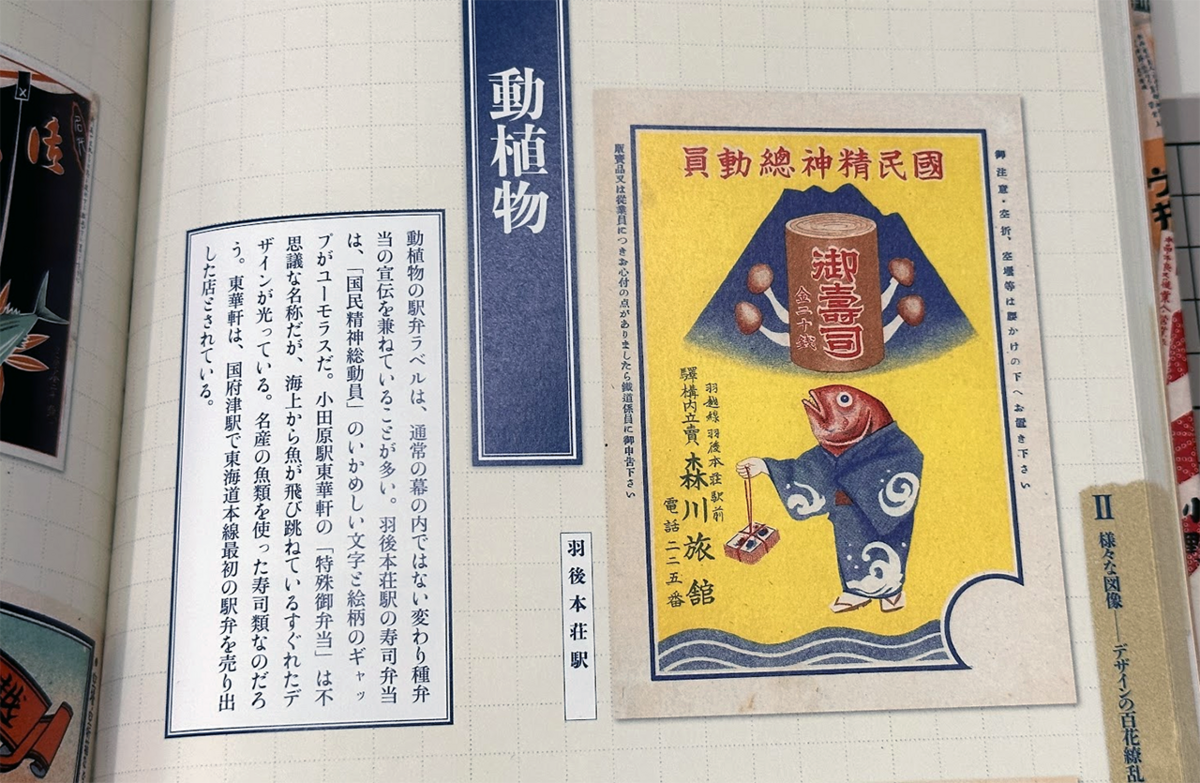 動植物
國民精神總動員
御注意・空折、空壜等は腰かけの下へお置き下さい
御壽司
金二十銭
羽越線 羽後本荘駅前
驛構内立賣 森川旅館
電話 二二五番
販賣品又は従業員につきお心付の点がありましたら鐵道係員に御申告下さい
羽後本荘駅
動植物の駅弁ラベルは、通常の幕の内ではない変わり種弁
当の宣伝を兼ねていることが多い。羽後本荘駅の寿司弁当
は、「国民精神総動員」のいかめしい文字と絵柄のギャッ
プがユーモラスだ。小田原駅東華軒の「特殊御弁当」は不
思議な名称だが、海上から魚が飛び跳ねているすぐれたデ
ザインが光っている。名産の魚類を使った寿司類なのだろ
う。東華軒は、国府津駅で東海道本線最初の駅弁を売り出
した店とされている。
II 様々な図像──デザインの百花繚乱